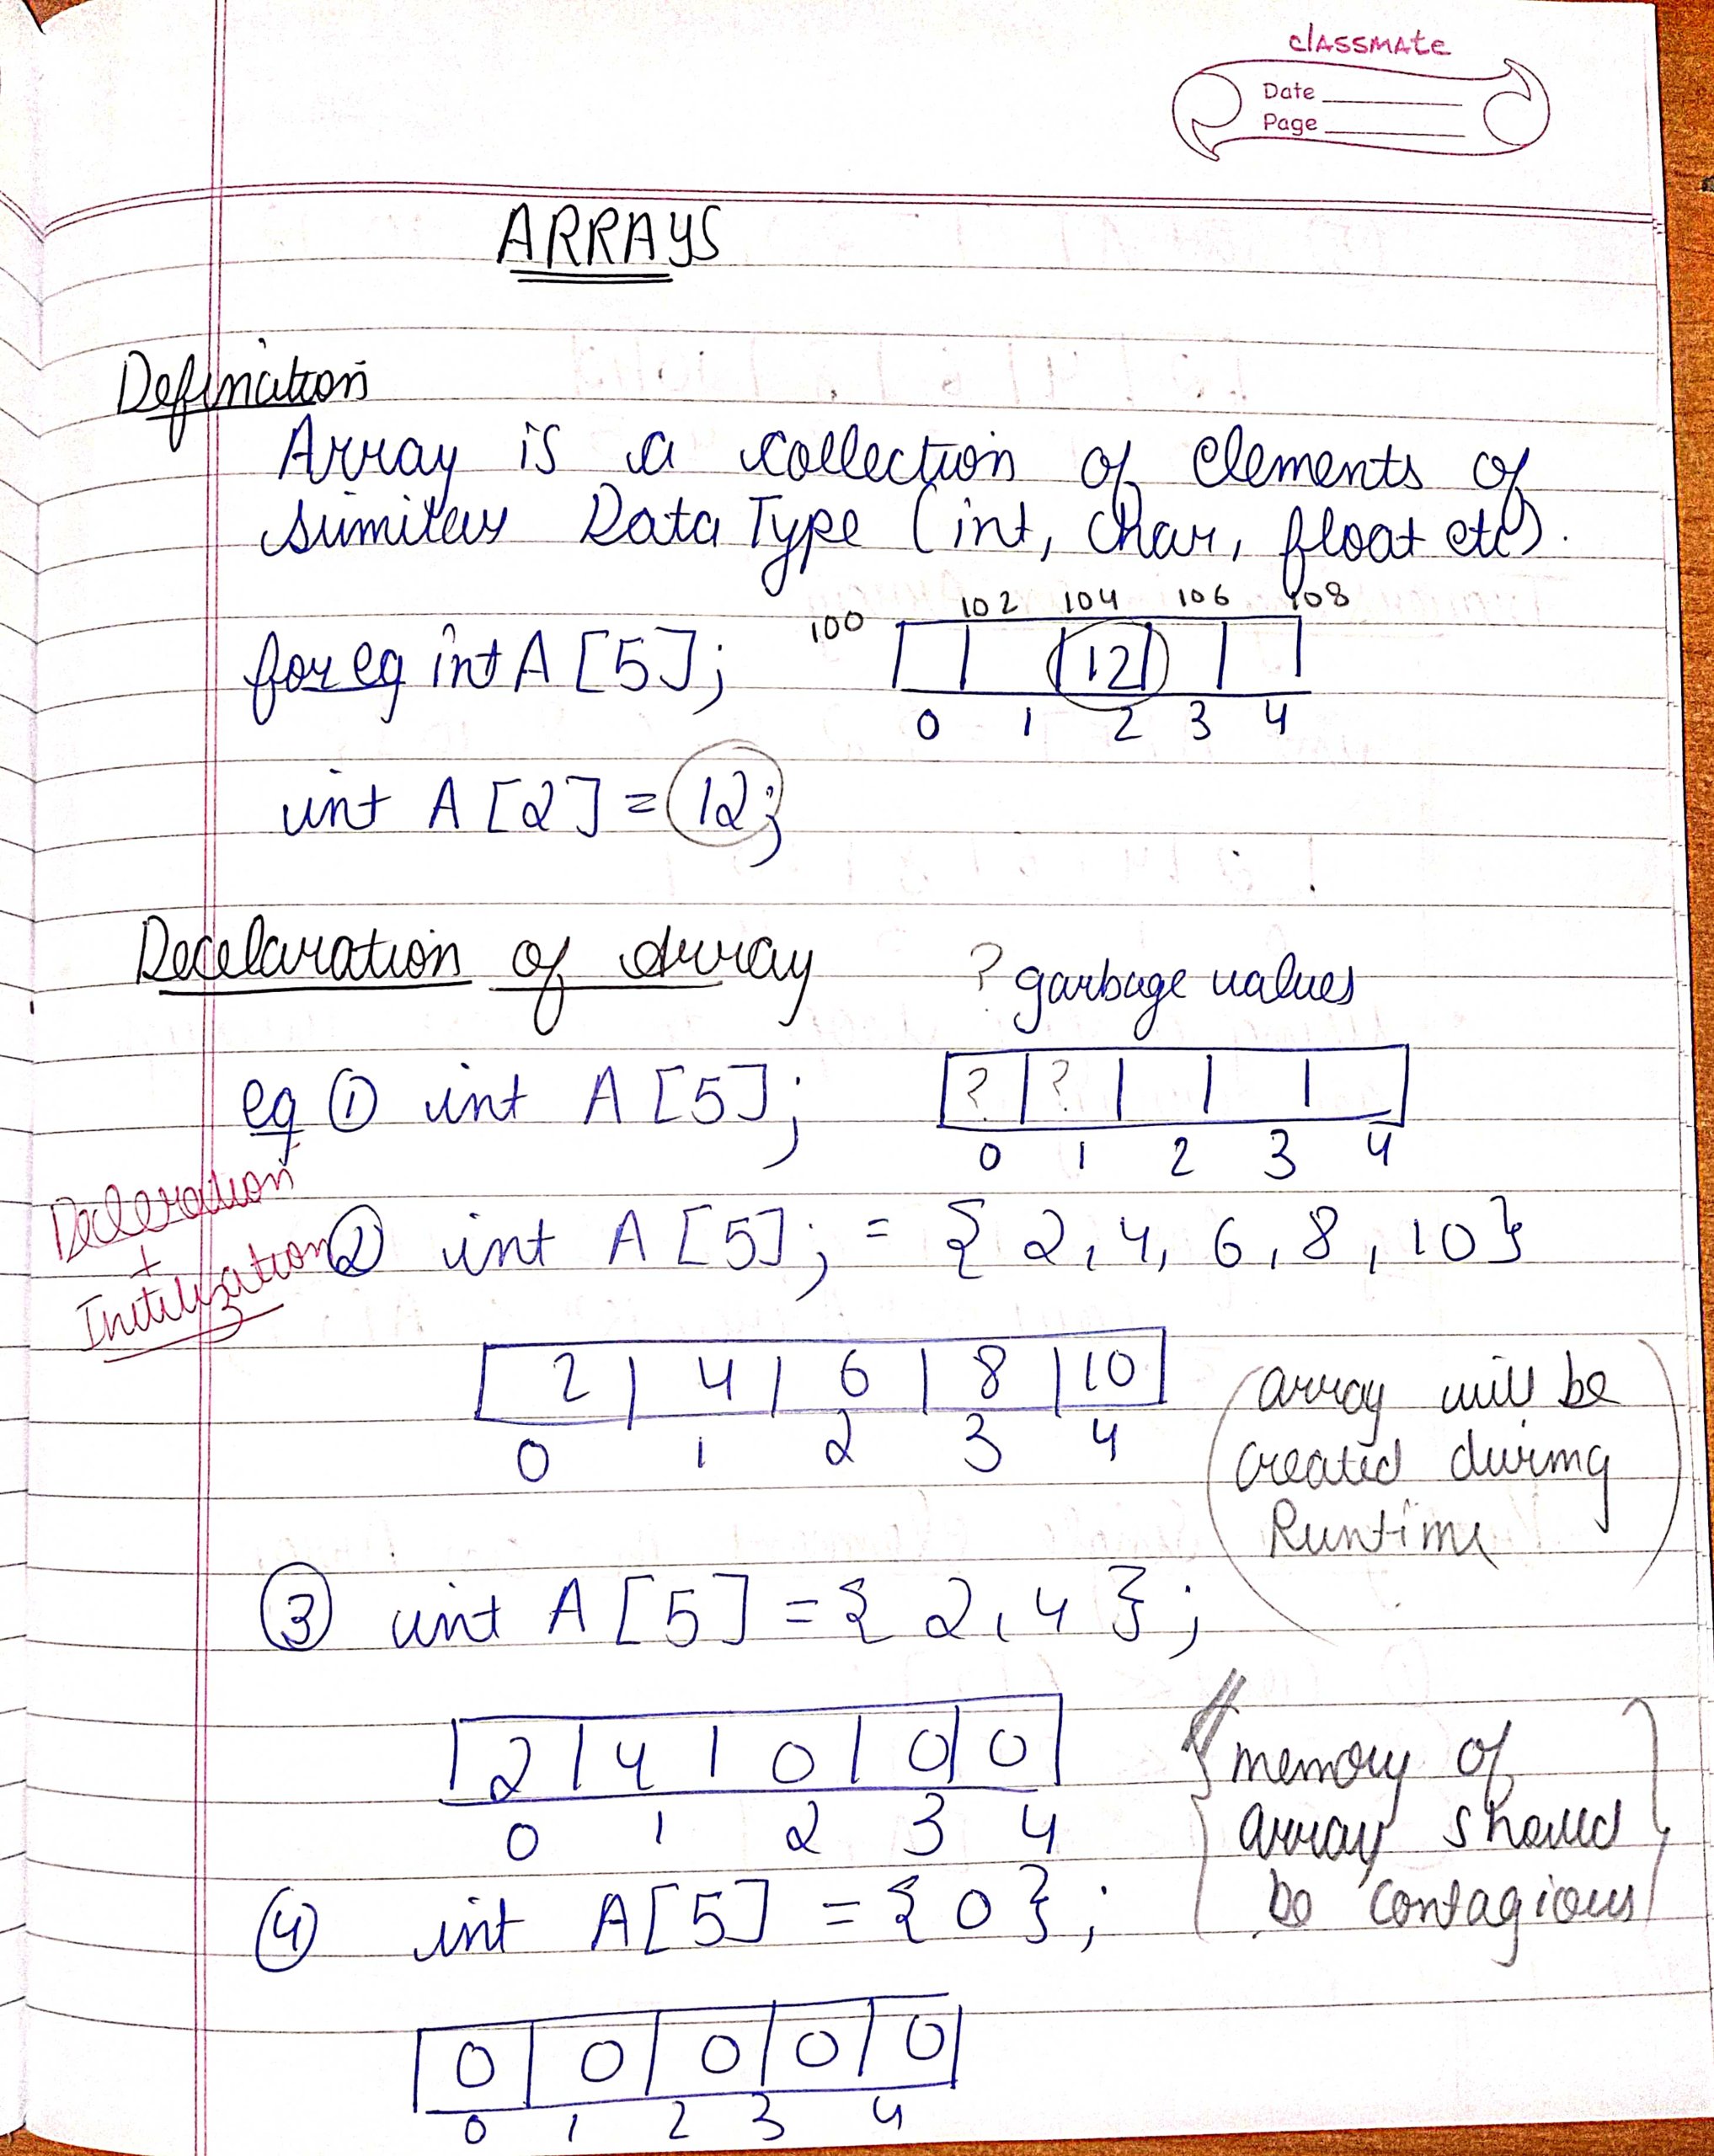 classmate
Date
Page
ARRAYS
Defination
Array is a collection of elements of
similar Data Type (int, char, float etc).
100 102 104 106 108
for eg int A [5]; 12
0 1 2 3 4
int A [2] = 12;
Decelaration of array ? garbage values
eg ① int A [5]; ? ?
0 1 2 3 4
Decleration
+
Initilization
② int A [5]; = { 2, 4, 6, 8, 10}
2 4 6 8 10
0 1 2 3 4
array will be
created during
Runtime
③ int A [5] = { 2, 4 };
2 4 0 0 0
0 1 2 3 4
memory of
array should
be contagious
④ int A[5] = { 0 };
0 0 0 0 0
0 1 2 3 4